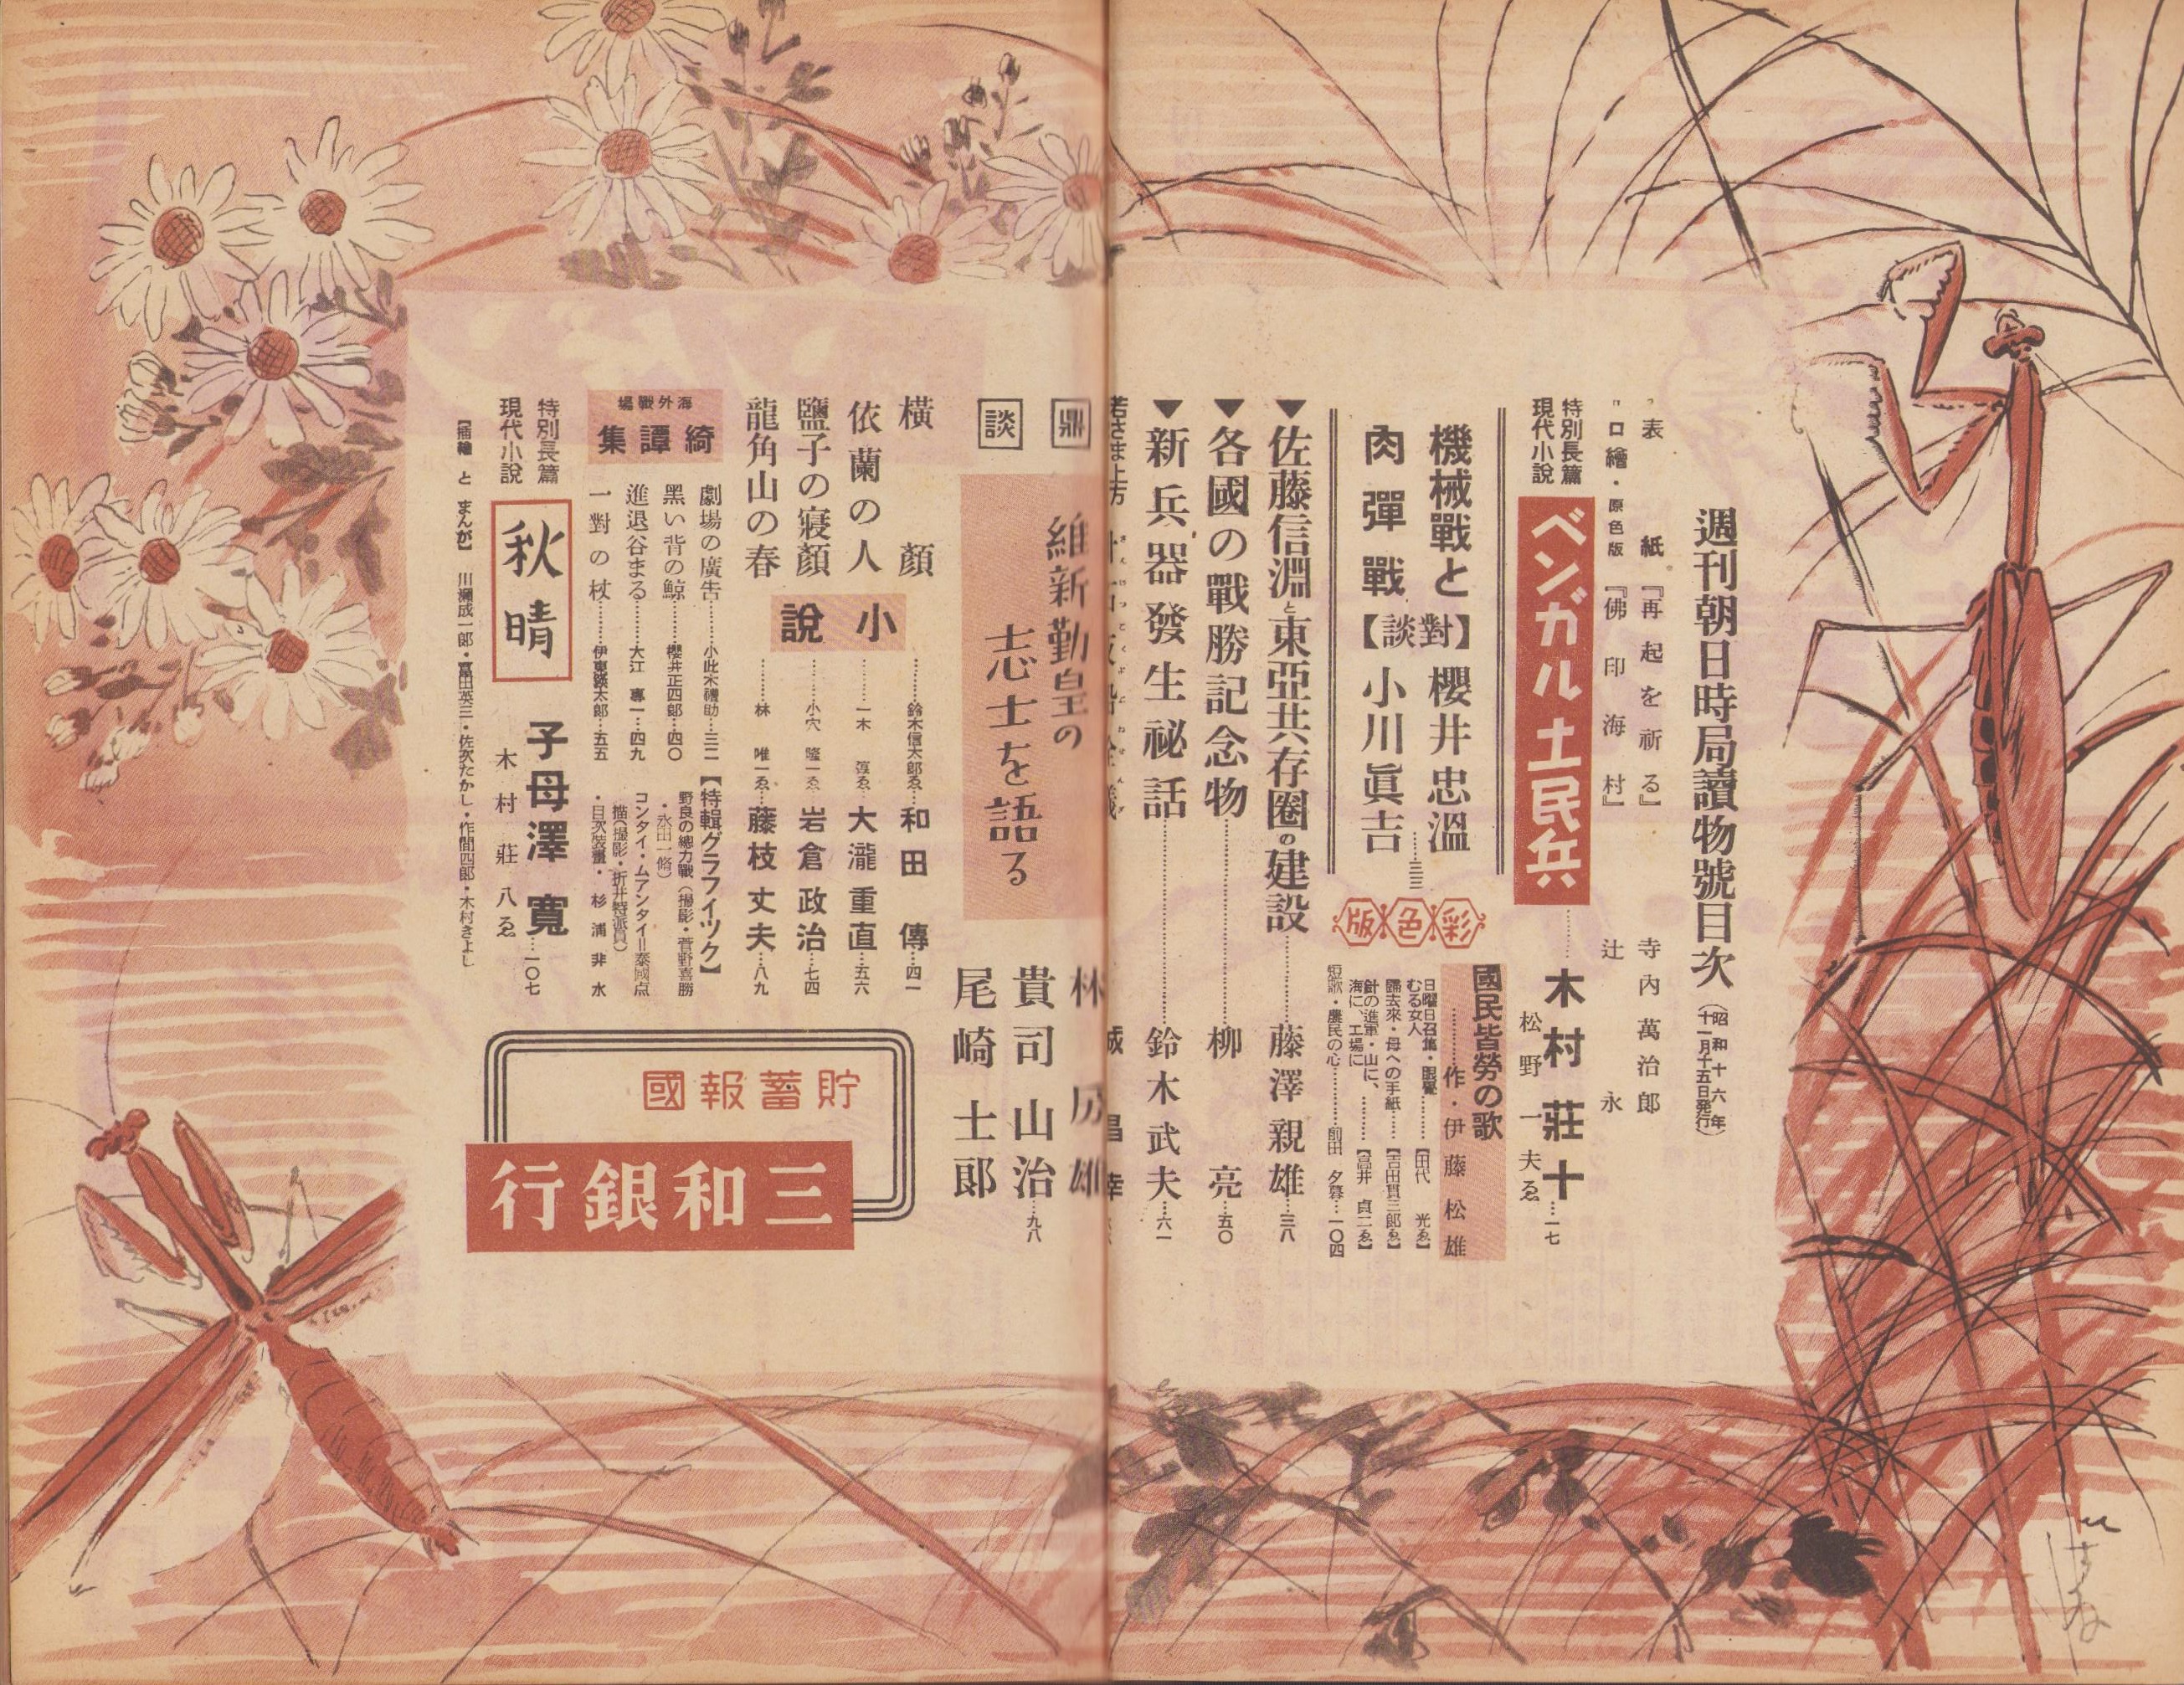 週刊朝日時局讀物號目次（昭和十六年十一月十五日発行）
表紙『再起を祈る』 寺內萬治郎
口繪・原色版『佛印海村』 辻永
特別長篇
現代小說
ベンガル土民兵 木村莊十…一七
松野一夫ゑ
機械戰と
肉彈戰
【對談】
櫻井忠溫
小川眞吉
彩色版
國民皆勞の歌
作・伊藤松雄
むる女人【田代光ゑ】
歸去來・母への手紙【吉田貫三郎ゑ】
針の進軍・山に、
海に、工場に【高井貞二ゑ】
短歌・農民の心 前田夕暮…一〇四
▼佐藤信淵と東亞共存圈の建設 藤澤親雄…三八
▼各國の戰勝記念物 柳亮…五〇
▼新兵器發生祕話 鈴木武夫…六一
鼎談
維新勤皇の
志士を語る
林房雄
貴司山治
尾崎士郎
九八
小說
橫顏 鈴木信太郎ゑ 和田傳…四一
依蘭の人 一木弴ゑ 大瀧重直…五六
鹽子の寢顏 小穴隆一ゑ 岩倉政治…七四
龍角山の春 林唯一ゑ 藤枝丈夫…八九
海外戰場
綺譚集
劇場の廣告…小此木禮助…三二
黑い背の鯨…櫻井正四郎…四〇
進退谷まる…大江專一…四九
一對の杖…伊東鍈太郎…五五
【特輯グラフイツク】
野良の總力戰（撮影・菅野喜勝
・永田一脩）
コンタイ・ムアンタイ＝泰國点
描（撮影・折井特派員）
・目次裝畫・杉浦非水
特別長篇
現代小說
秋晴 子母澤寬…一〇七
木村莊八ゑ
【插繪とまんが】川瀨成一郎・富田英三・佐次たかし・作間四郎・木村きよし
貯蓄報國
三和銀行